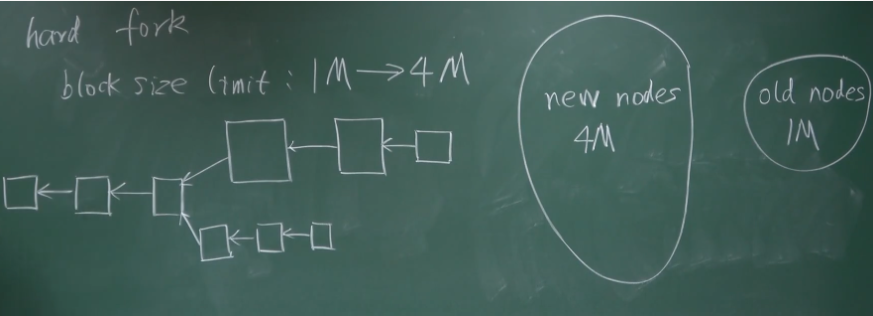 hard fork
block size limit : 1M→4M
new nodes
4M
old nodes
1M